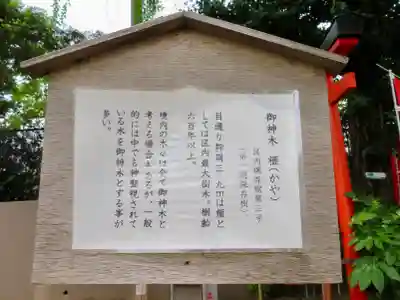 御神木 榧(かや)
区内保存樹第三号
目通り幹周三.九四は榧と
しては区内最大樹木。樹齢
六百年以上。
境内の木は全て御神木と
考える場合もあるが、一般
的には中でも神聖視されて
いる木を御神木とする事が
多い。